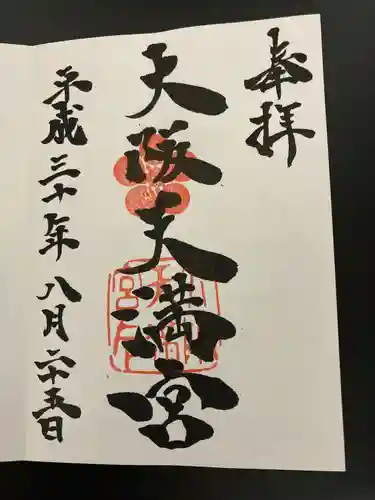 奉拝
大阪天満宮
平成三十年八月二十五日